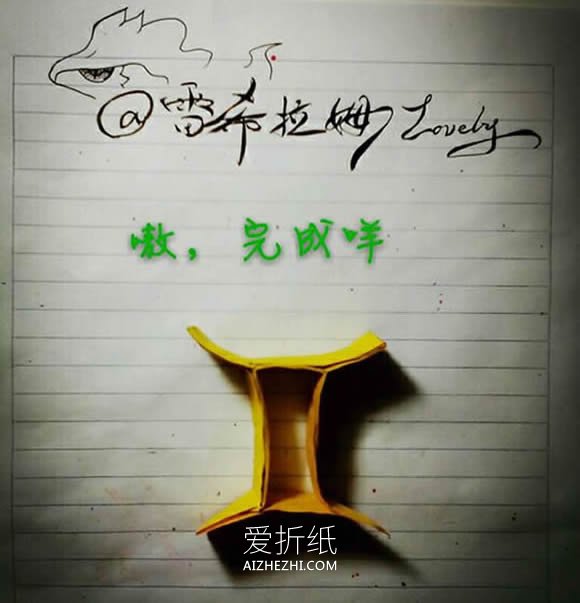 @雷希拉姆Lovely
嗷，完成咩
爱折纸
AIZHEZHI.COM